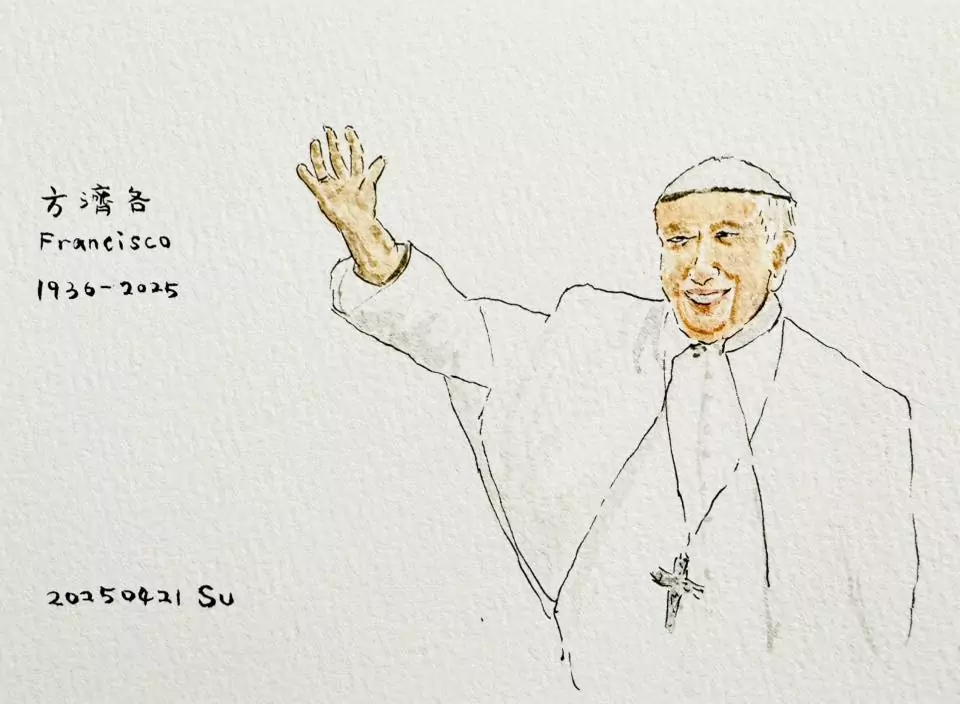 方濟各
Francisco
1936-2025
20250421 Su